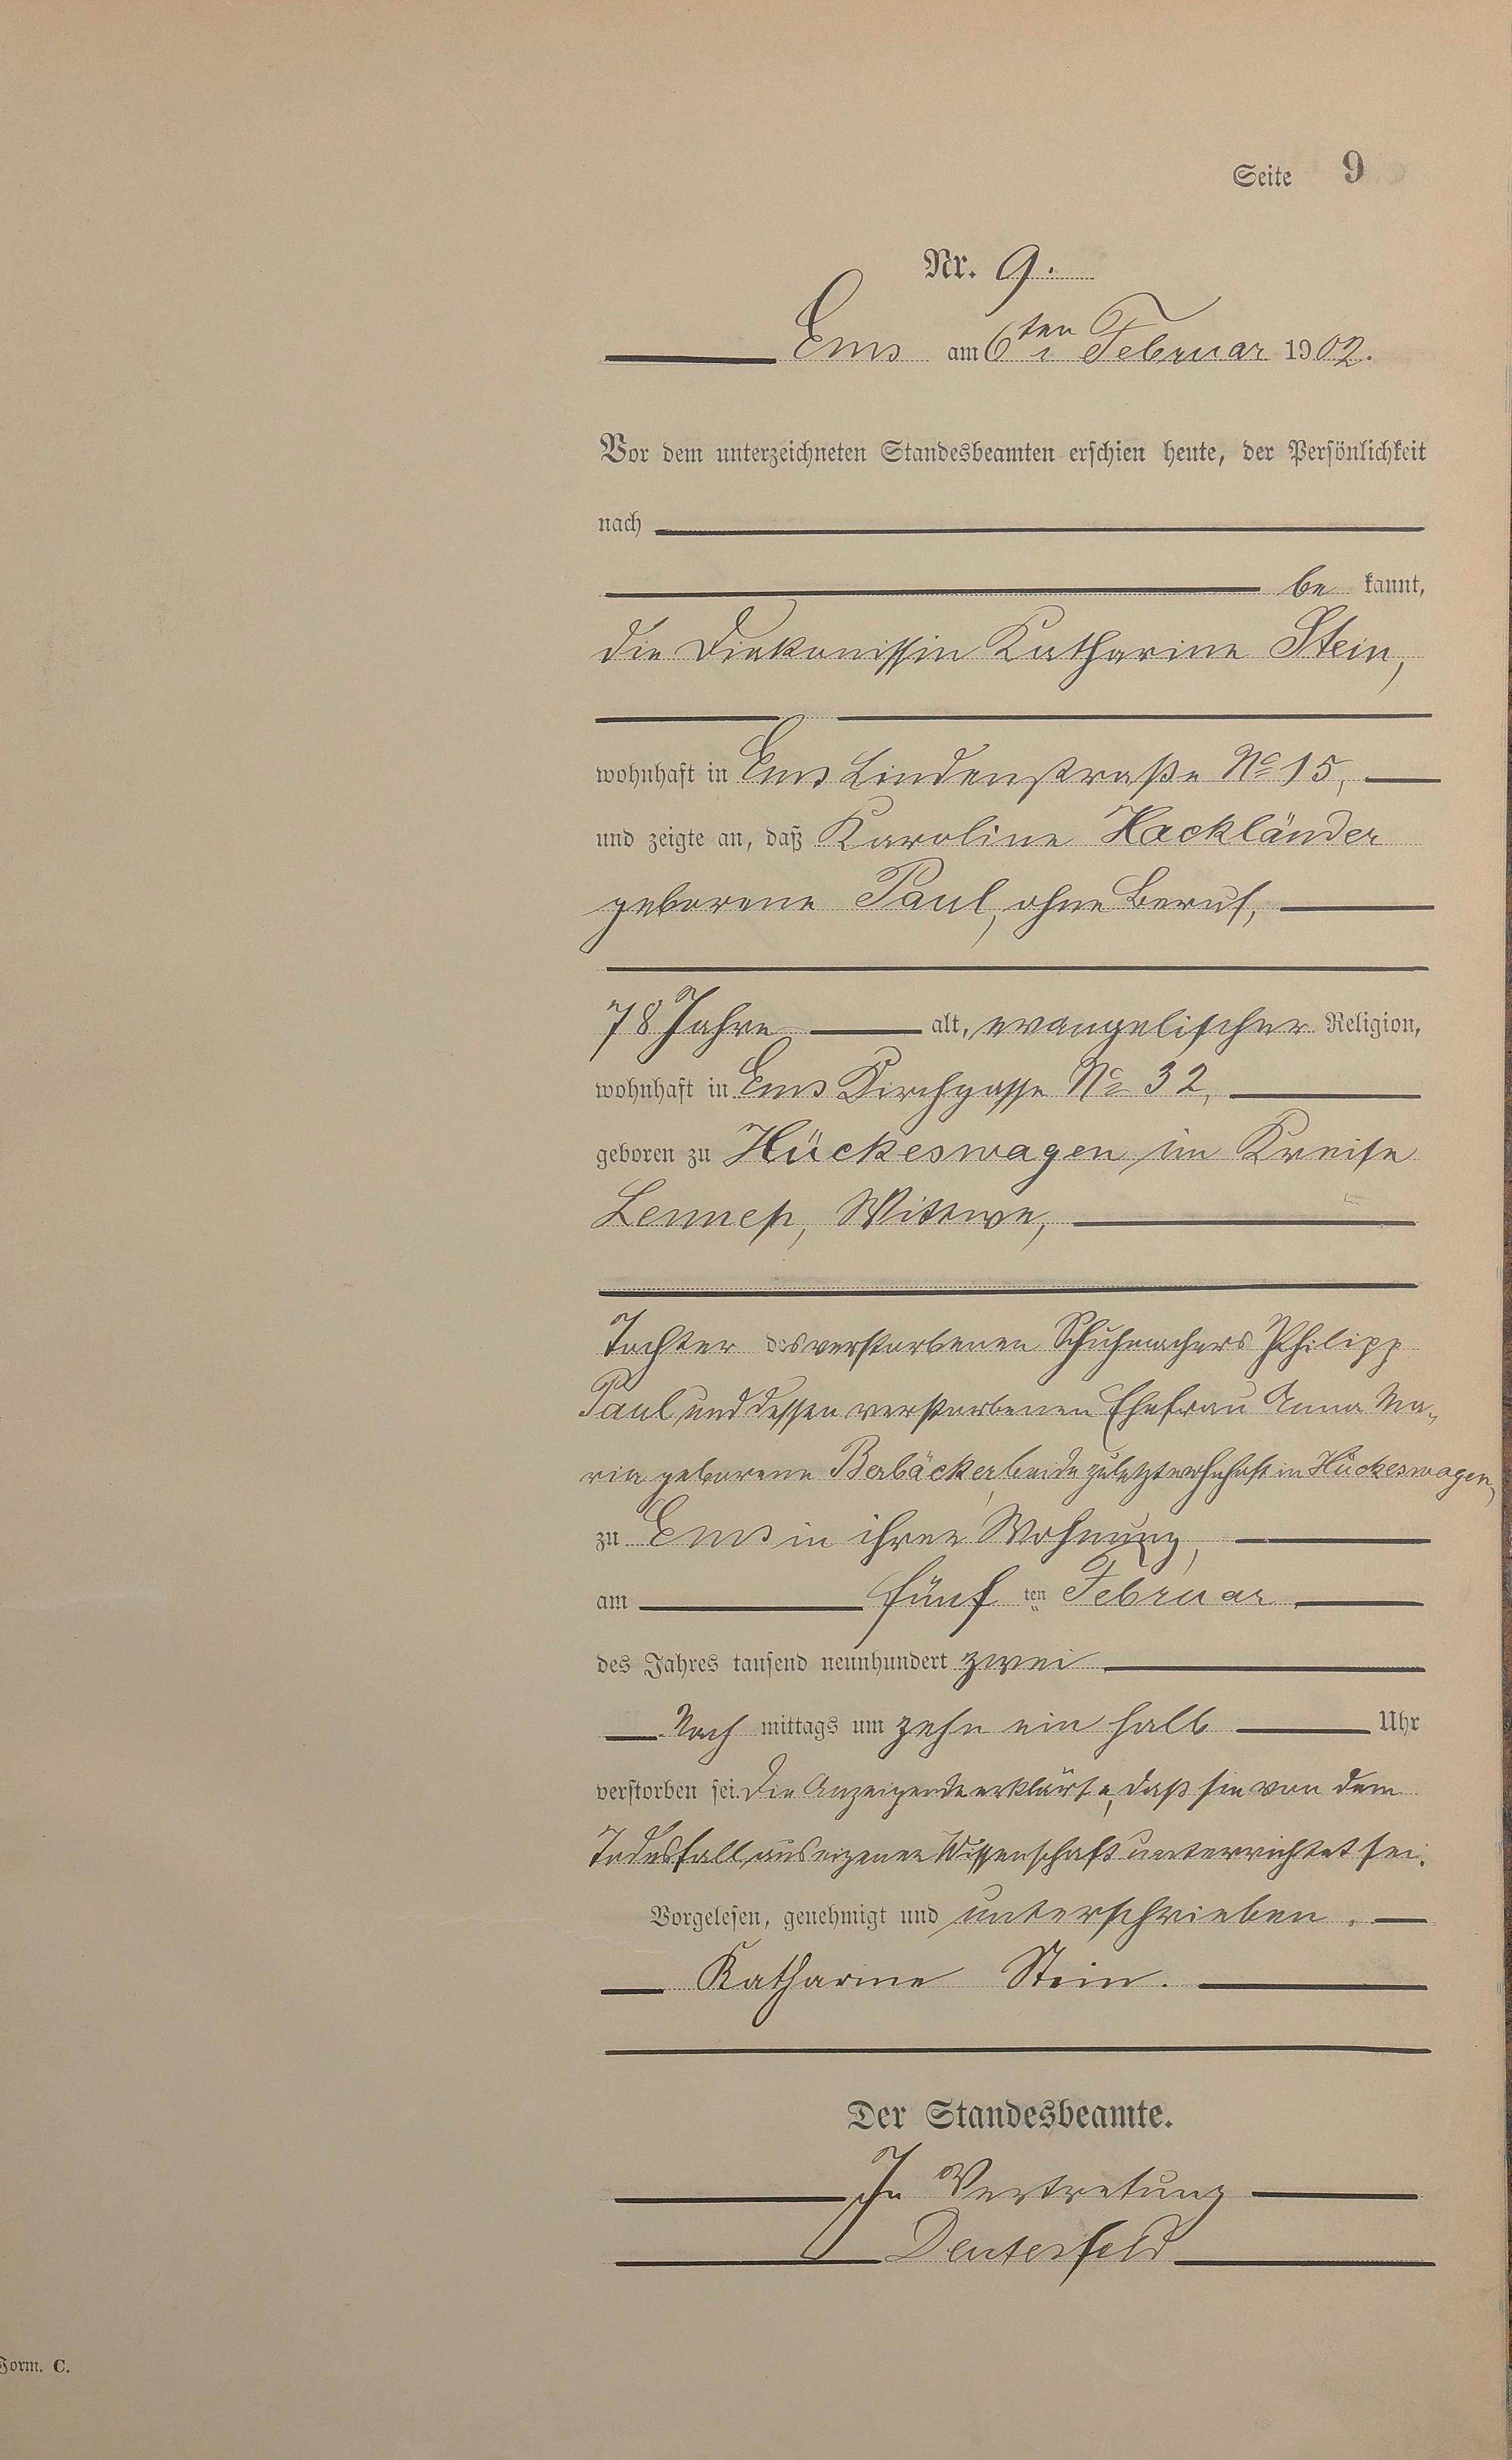 Seite 9
Nr. 9.
Ems am 6ten Februar 1902.
Vor dem unterzeichneten Standesbeamten erschien heute, der Persönlichkeit
nach
be kannt,
die Diakonissin Katharina Stein,
wohnhaft in Ems Lindenstraße No 15,
und zeigte an, daß Karoline Hackländer
geborene Paul, ohne Beruf,
78 Jahre alt, evangelischer Religion,
wohnhaft in Ems Kirchgasse No 32,
geboren zu Hückeswagen im Kreise
Lennep, Wittwe,
Tochter des verstorbenen Schuhmachers Philipp
Paul und dessen verstorbenen Ehefrau Anna Ma-
ria geborene Berbäcker, beide zuletzt wohnhaft in Hückeswagen,
zu Ems in ihrer Wohnung,
am fünf ten Februar
des Jahres tausend neunhundert zwei
Nach mittags um zehn ein halb Uhr
verstorben sei. Die Anzeigende erklärte, daß sie von dem
Todesfall aus eigener Wissenschaft unterrichtet sei.
Vorgelesen, genehmigt und unterschrieben.
Katharine Stein.
Der Standesbeamte.
In Vertretung
Form. C.